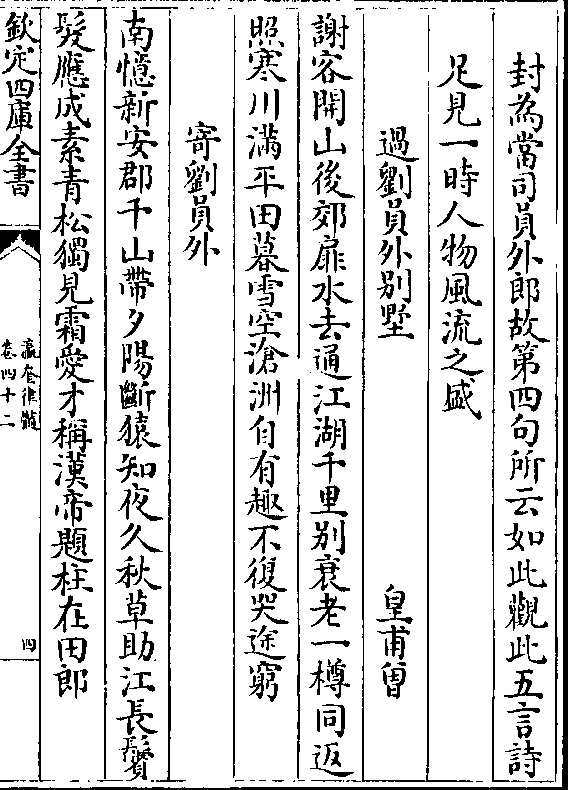 封為當司員外郎故第四句所云如此觀此五言詩
足見一時人物風流之盛
過劉員外别墅　皇甫曾
謝客開山後郊扉水去通江湖千里别衰老一樽同返
照寒川滿平田暮雪空滄洲自有趣不復哭途窮
寄劉員外
南憶新安郡千山帶夕陽斷猿知夜久秋草助江長鬢
髮應成素青松獨見霜愛才稱漢帝題柱在田郎
欽定四庫全書
瀛奎律髓
卷四十二
四